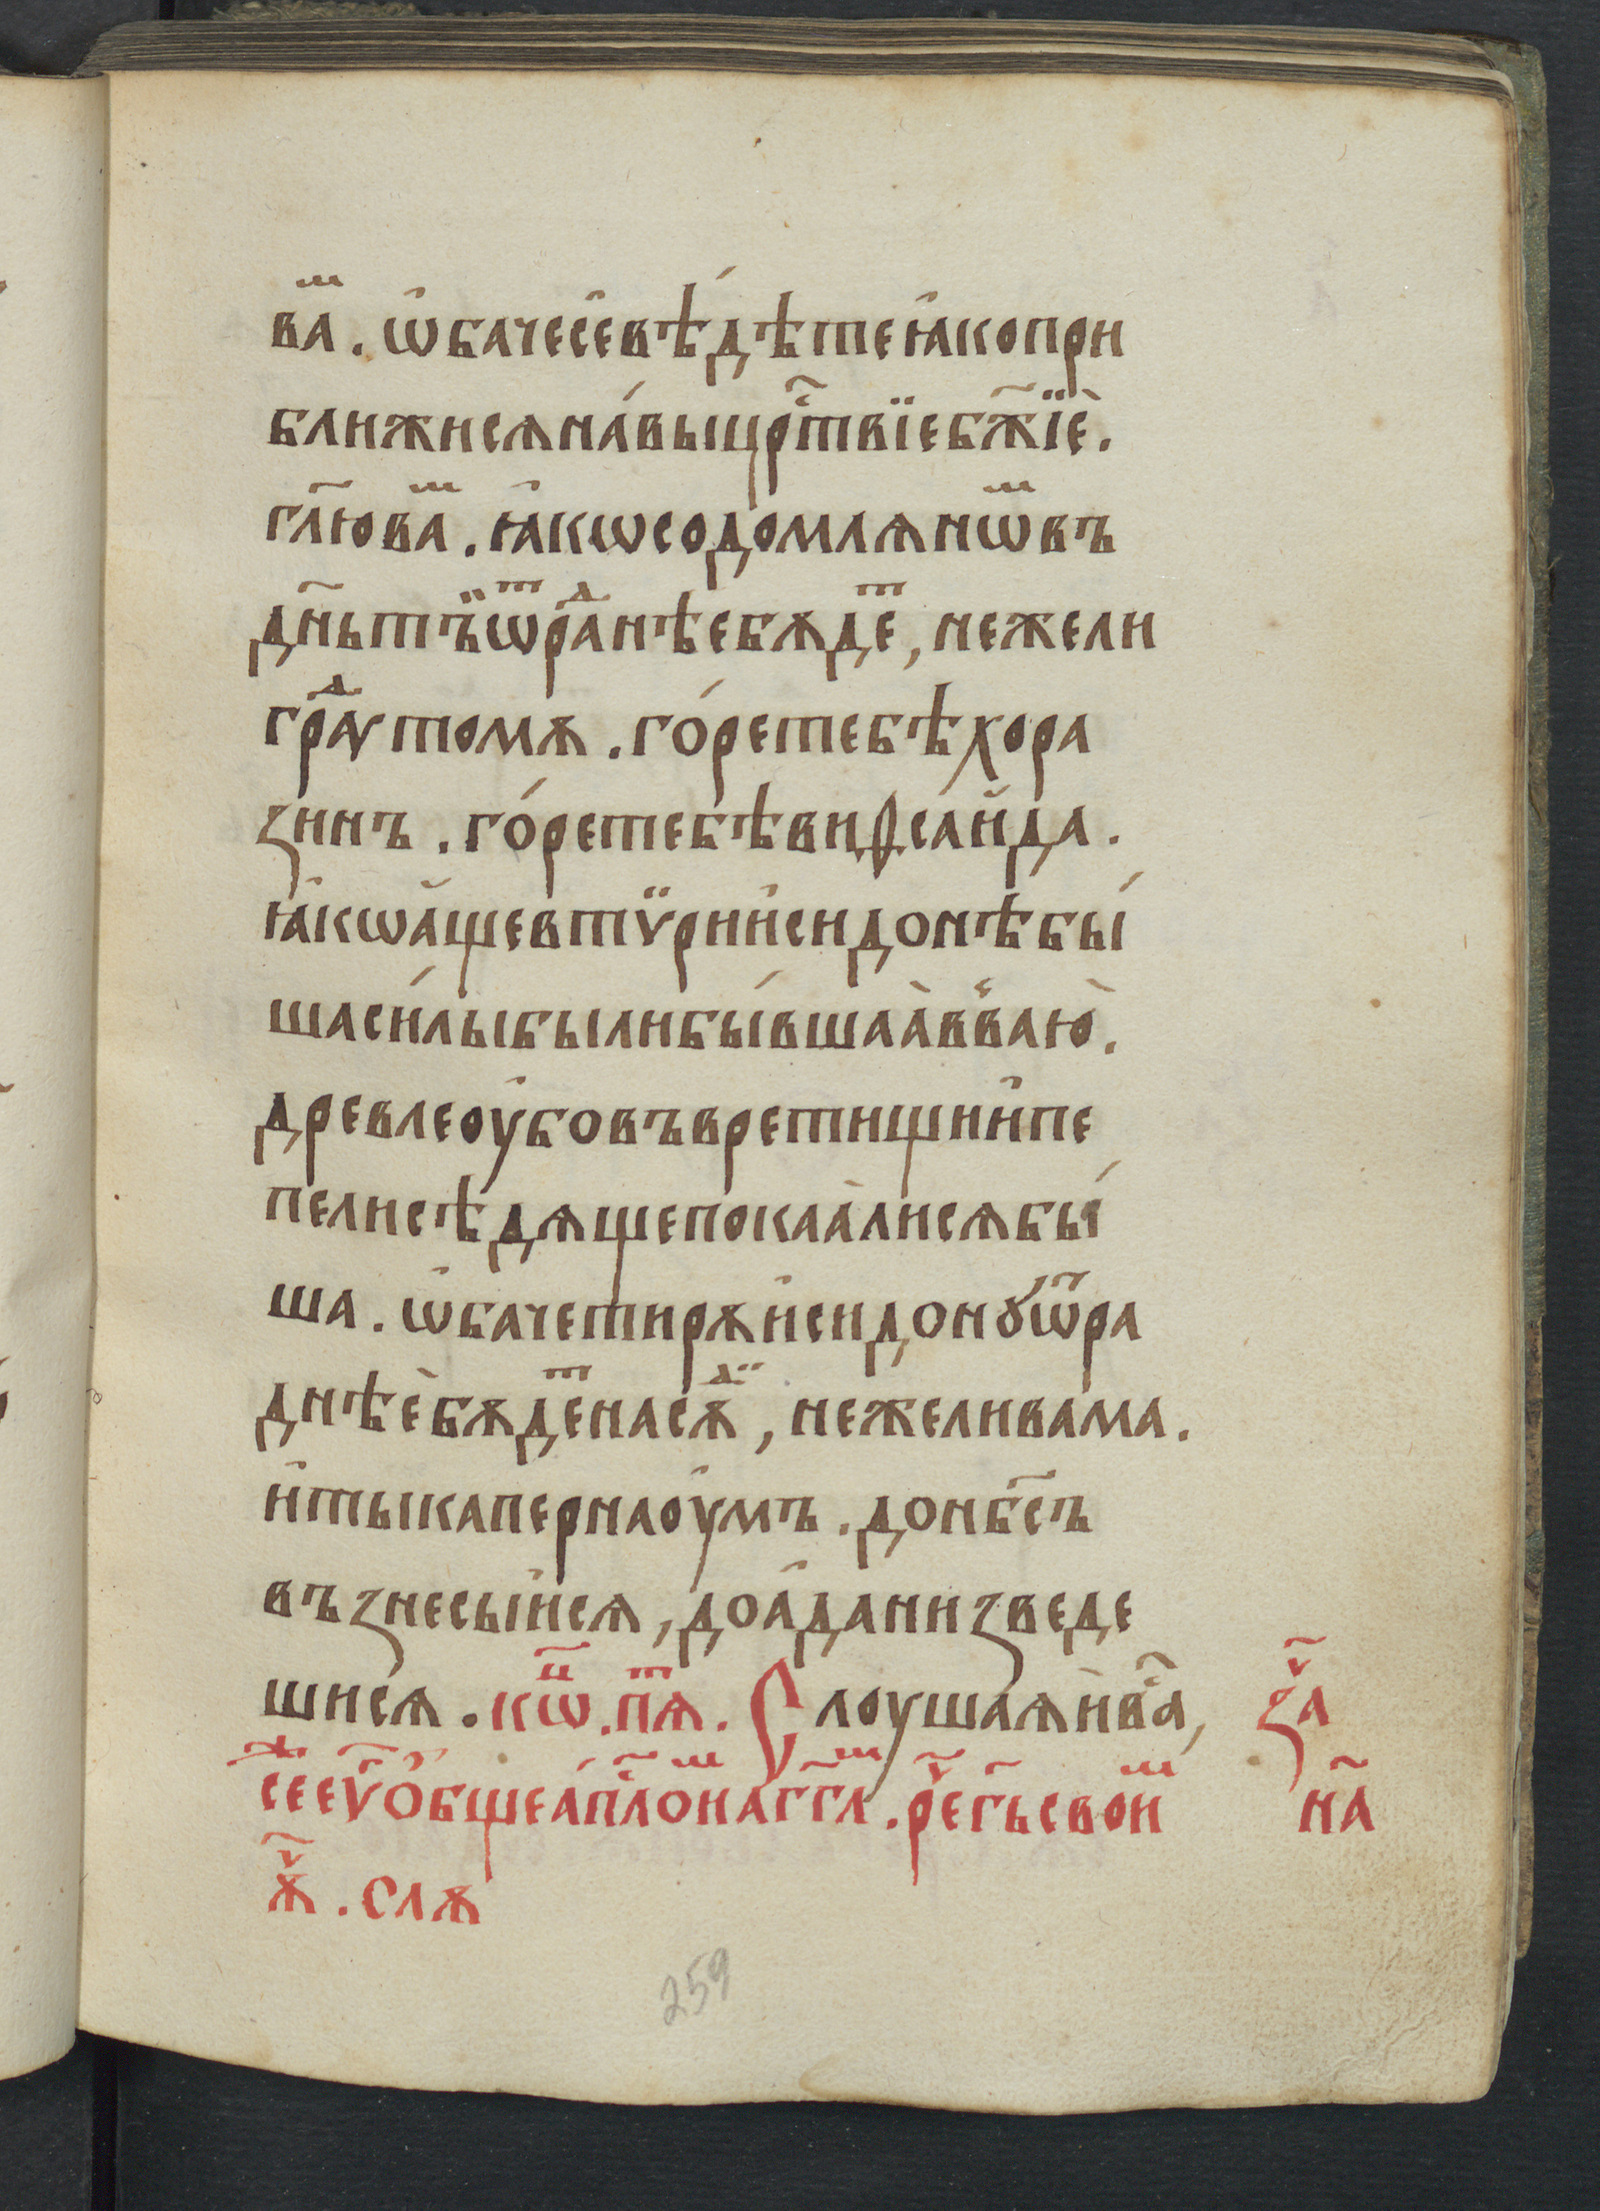 ва̑ⷨ . ѡ҆баче се҆ вѣ́дѣте ꙗ҆ко при
ближисѧ на́вы црⷭ҇твїе бж҃їѐ .
гл҃ю ваⷨ . ꙗ҆кѡ содомлѧнѡⷨ въ
дн҃ь тъ̈ ѿраⷣнѣе бѫдеⷮ , нежели
граⷣу томѫ . го́ре тебѣ хора
зинъ . го́ре тебѣ виѳсаи҆да .
ꙗ҆кѡ а҆ще в тѵ̈рии҆ сидонѣ бы́
ша си́лы были бы́вшаа̀ в ваю̀ .
древле оу҆бо въ вретищи и҆ пе
пели сѣдѧще покаа̀лисѧ бы́
ша . ѡ҆баче тирѫ и҆ сидонꙋ́ ѿра
днѣѐ бѫдеⷮ на сѫⷣ , нежели вама .
и҆ ты капернаоу҆мъ . до нб҃съ
възнесы́исѧ , до а҆да низведе
шисѧ . кѡⷰ҇ . пѧⷮ . Слоушаѧи҆ ваⷭ҇ ,
се еѵⷢ҇ о҆бще а҆пⷭ҇ломъ аггⷧ҇ . реⷱ҇ гь свои̑ⷨ
ѫ҃ⷱ . слѫ
заⷱ҇
на҃
259